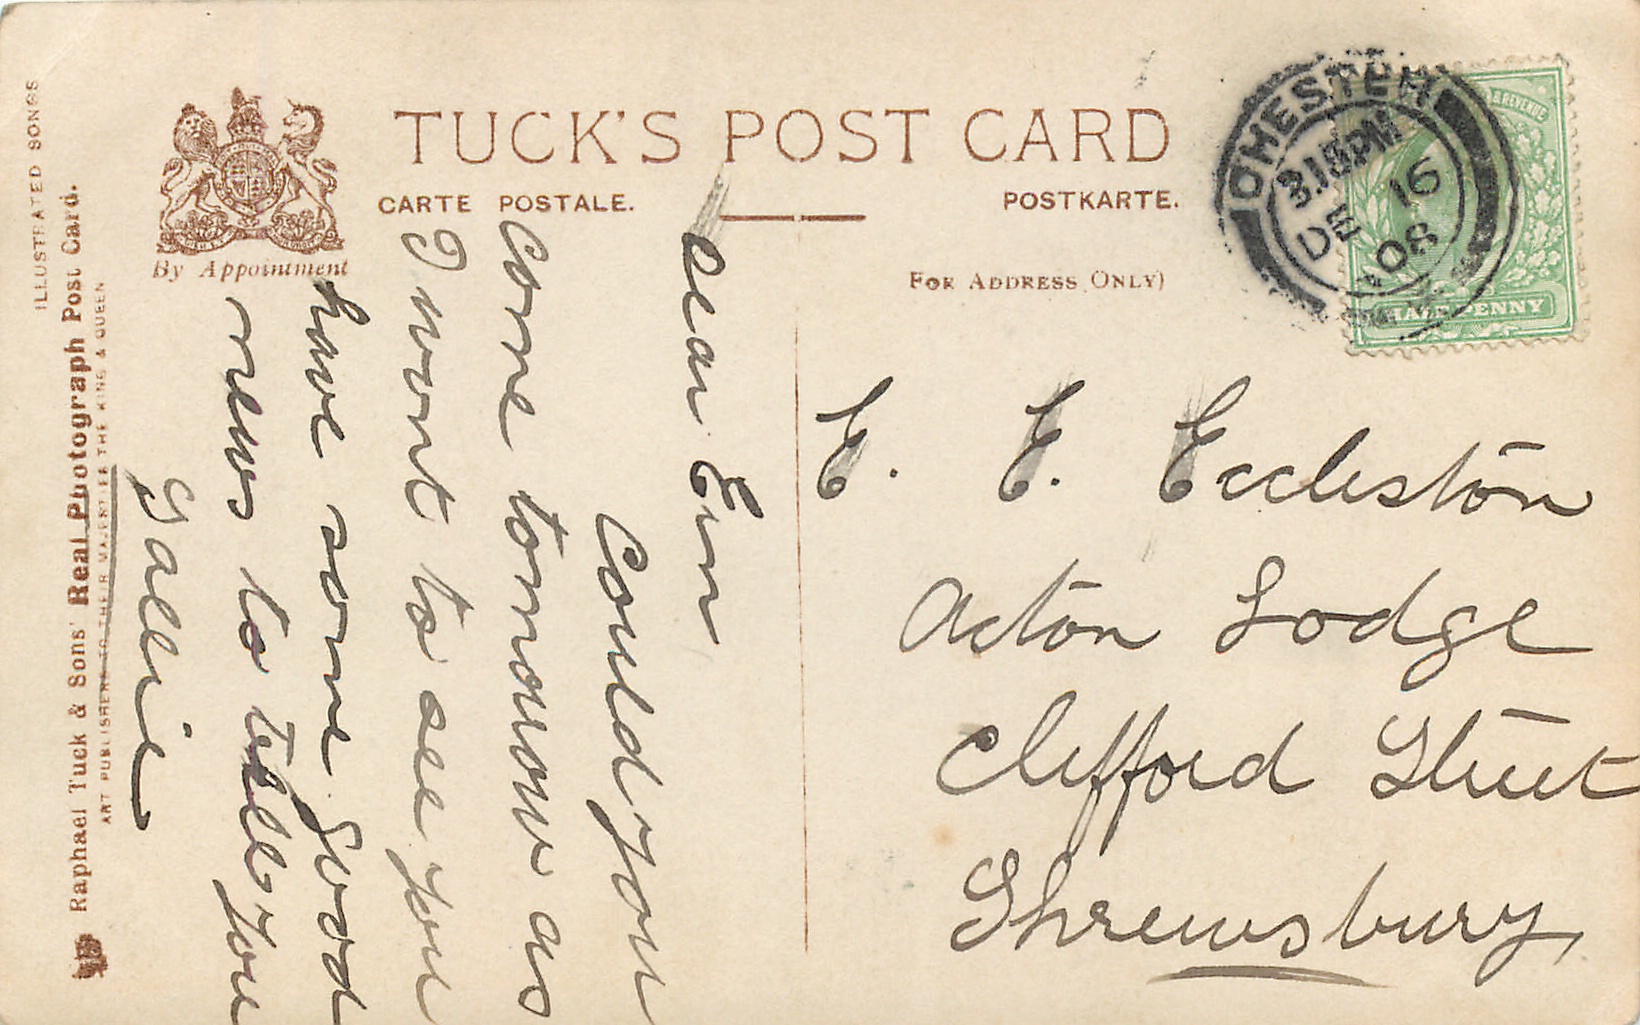 TUCK'S POST CARD
CARTE POSTALE.
POSTKARTE.
By Appointment
FOR ADDRESS ONLY)
ILLUSTRATED SONGS
Raphael Tuck & Sons' Real Photograph Post Card.
ART PUBLISHERS TO THEIR MAJESTIES THE KING & QUEEN
3.15PM
DE 16
08
& REVENUE
HALFPENNY
Dear Em
Could you
come tomorrow as
I want to see you
have some good
news to tell you
Gallie
E. E. Eccleston
Acton Lodge
Clifford Street
Shrewsbury